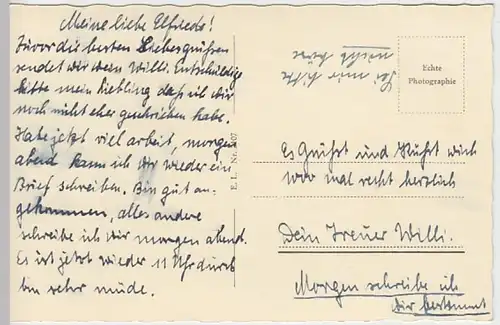 Meine liebe Elfriede!
Zuvor die besten Liebesgrüßen
sendet dir dein Willi. Entschuldige
bitte mein Liebling daß ich dir
noch nicht eher geschrieben habe.
Habe jetzt viel arbeit, morgen
abend kann ich dir wieder ein
Brief schreiben. Bin gut an-
gekommen, alles andere
schreibe ich dir morgen abend.
Es ist jetzt wieder 11 Uhr durch
bin sehr müde.
Sei mir bitte
nicht böse
Echte
Photographie
Es Grüßt und Küßt dich
noch mal recht herzlich
Dein Treuer Willi.
Morgen schreibe ich
dir bestimmt